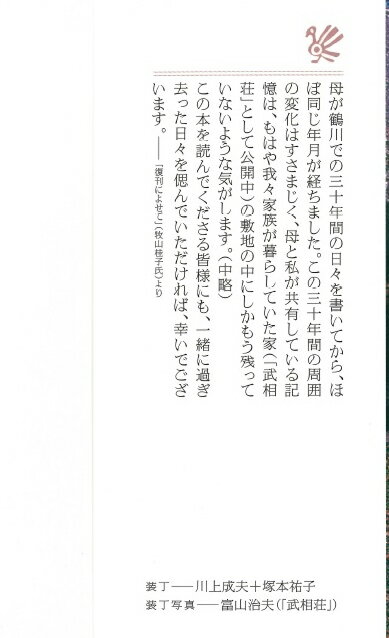 母が鶴川での三十年間の日々を書いてから、ほ
ぼ同じ年月が経ちました。この三十年間の周囲
の変化はすさまじく、母と私が共有している記
憶は、もはや我々家族が暮らしていた家(「武相
荘」として公開中)の敷地の中にしかもう残って
いないような気がします。(中略)
この本を読んでくださる皆様にも、一緒に過ぎ
去った日々を偲んでいただければ、幸いでござ
います。——「復刊によせて」(牧山桂子氏)より
装丁——川上成夫+塚本祐子
装丁写真——富山治夫(「武相荘」)